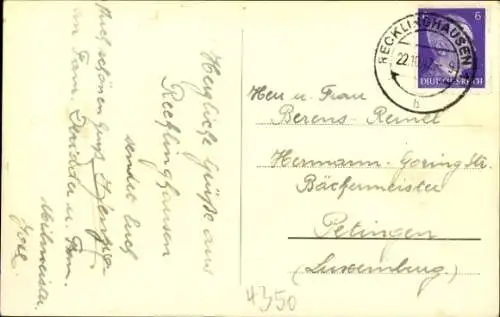 Herzliche Grüße aus
Recklinghausen
sendet Euch
Auch schönen Gruß
an Fam. u. Fam.
RECKLINGHAUSEN
22.10.42
b
6
DEUTSCHES REICH
Herr u. Frau
Berens-Reinel
Hermann-Goring Str.
Bäckermeister
Petingen
(Luxemburg.)
4350